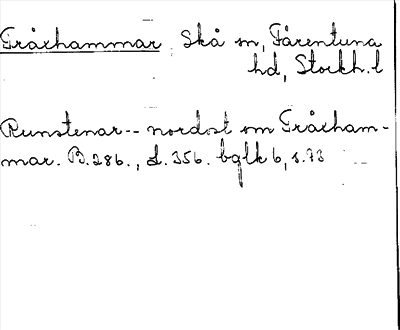 Tråxhammar, Skå sn, Färentuna
hd, Stockh. l
Runstenar -- nordost om Tråxham-
mar. B. 286., d. 356. bglk 6, s. 73